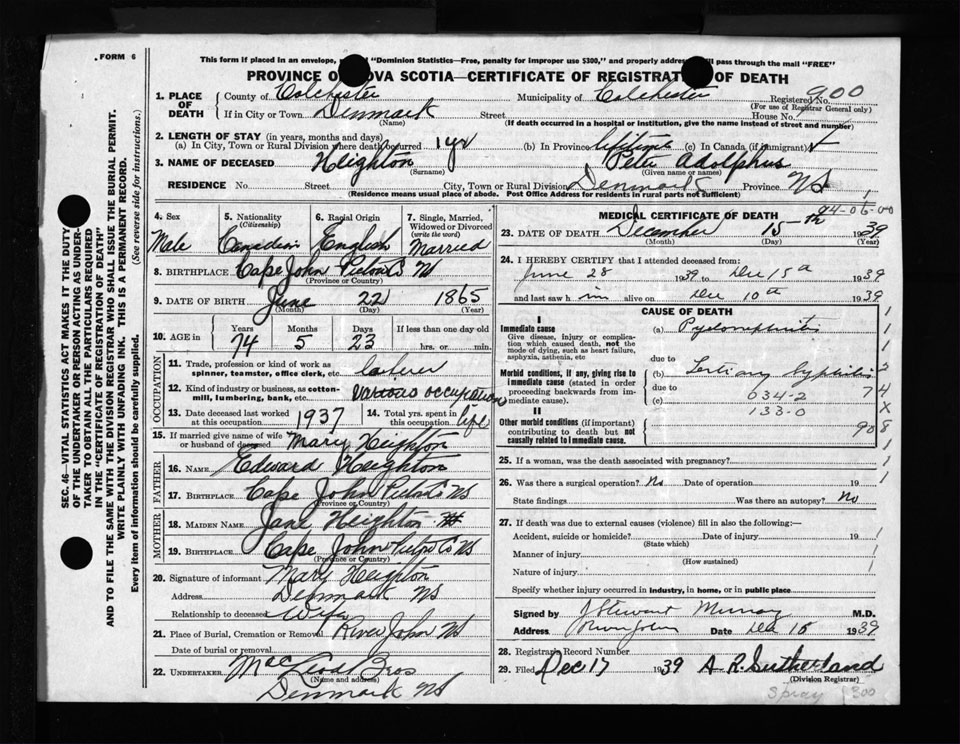 FORM 6
This form if placed in an envelope, "Dominion Statistics—Free, penalty for improper use $300," and properly will pass through the mail "FREE"
PROVINCE OF NOVA SCOTIA—CERTIFICATE OF REGISTRATION OF DEATH
1. PLACE OF DEATH County of Colchester Municipality of Colchester Registered No. 900
(For use of Registrar General only)
If in City or Town Denmark Street House No.
(Name) (If death occurred in a hospital or institution, give the name instead of street and number)
2. LENGTH OF STAY (in years, months and days)
(a) In City, Town or Rural Division where death occurred 1 yr (b) In Province lifetime (c) In Canada (if immigrant)
3. NAME OF DECEASED Heighton Peter Adolphus
(Surname) (Given name or names)
RESIDENCE No. Street City, Town or Rural Division Denmark Province NS
(Residence means usual place of abode. Post Office Address for residents in rural parts not sufficient)
4. Sex 5. Nationality (Citizenship) 6. Racial Origin 7. Single, Married, Widowed or Divorced (write the word)
Male Canadian English Married
8. BIRTHPLACE Cape John Pictou Co NS
(Province or Country)
9. DATE OF BIRTH June 22 1865
(Month) (Day) (Year)
10. AGE in Years Months Days If less than one day old
74 5 23 hrs. or min.
OCCUPATION
11. Trade, profession or kind of work as spinner, teamster, office clerk, etc.
12. Kind of industry or business, as cotton-mill, lumbering, bank, etc. various occupation
13. Date deceased last worked at this occupation 1937 14. Total yrs. spent in this occupation life
15. If married give name of wife or husband of deceased Mary Heighton
FATHER
16. NAME Edward Heighton
17. BIRTHPLACE Cape John Pictou Co NS
(Province or Country)
MOTHER
18. MAIDEN NAME Jane Heighton
19. BIRTHPLACE Cape John Pictou Co NS
(Province or Country)
20. Signature of informant Mary Heighton
Address Denmark NS
Relationship to deceased Wife
21. Place of Burial, Cremation or Removal River John NS
Date of burial or removal
22. UNDERTAKER MacLeod Bros
(Name and address)
Denmark NS
94-06-00
MEDICAL CERTIFICATE OF DEATH
23. DATE OF DEATH December 15th 1939
(Month) (Day) (Year)
24. I HEREBY CERTIFY that I attended deceased from:
June 28 1939 to Dec 15th 1939
and last saw him alive on Dec 10th 1939
CAUSE OF DEATH
I
Immediate cause (a)
Give disease, injury or complication which caused death, not the mode of dying, such as heart failure, asphyxia, asthenia, etc
due to
Morbid conditions, if any, giving rise to immediate cause (stated in order proceeding backwards from immediate cause). (b) Tertiary Syphilis
due to
(c) 034-2
133-0
II
Other morbid conditions (if important) contributing to death but not causally related to immediate cause. 908
25. If a woman, was the death associated with pregnancy?
26. Was there a surgical operation? No Date of operation 19
State findings Was there an autopsy? No
27. If death was due to external causes (violence) fill in also the following:—
Accident, suicide or homicide? Date of injury 19
(State which)
Manner of injury
(How sustained)
Nature of injury
Specify whether injury occurred in industry, in home, or in public place
Signed by J Stewart Murray M.D.
Address River John Date Dec 15 1939
28. Registrar's Record Number
29. Filed Dec 17 1939 A. R. Sutherland
(Division Registrar)
SEC. 46—VITAL STATISTICS ACT MAKES IT THE DUTY
OF THE UNDERTAKER OR PERSON ACTING AS UNDERTAKER TO OBTAIN ALL THE PARTICULARS REQUIRED
IN THE "CERTIFICATE OF REGISTRATION OF DEATH"
AND TO FILE THE SAME WITH THE DIVISION REGISTRAR WHO SHALL ISSUE THE BURIAL PERMIT.
WRITE PLAINLY WITH UNFADING INK. THIS IS A PERMANENT RECORD.
Every item of information should be carefully supplied. (See reverse side for instructions.)